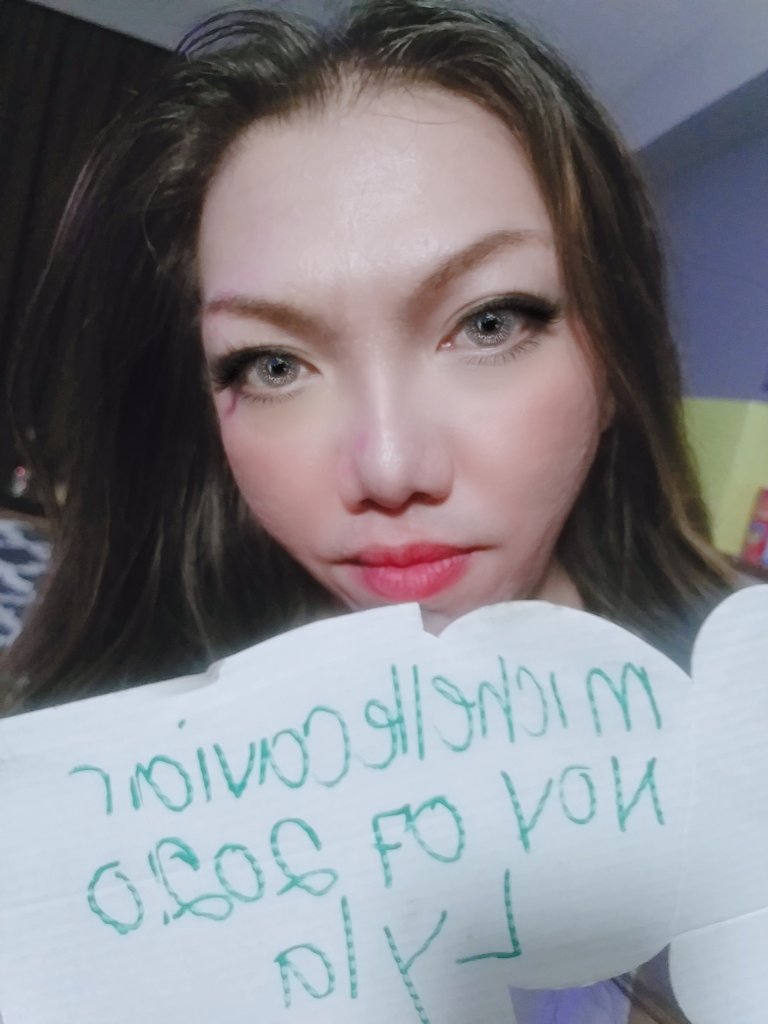 michellecaviar
Nov 07 2020
Lyla